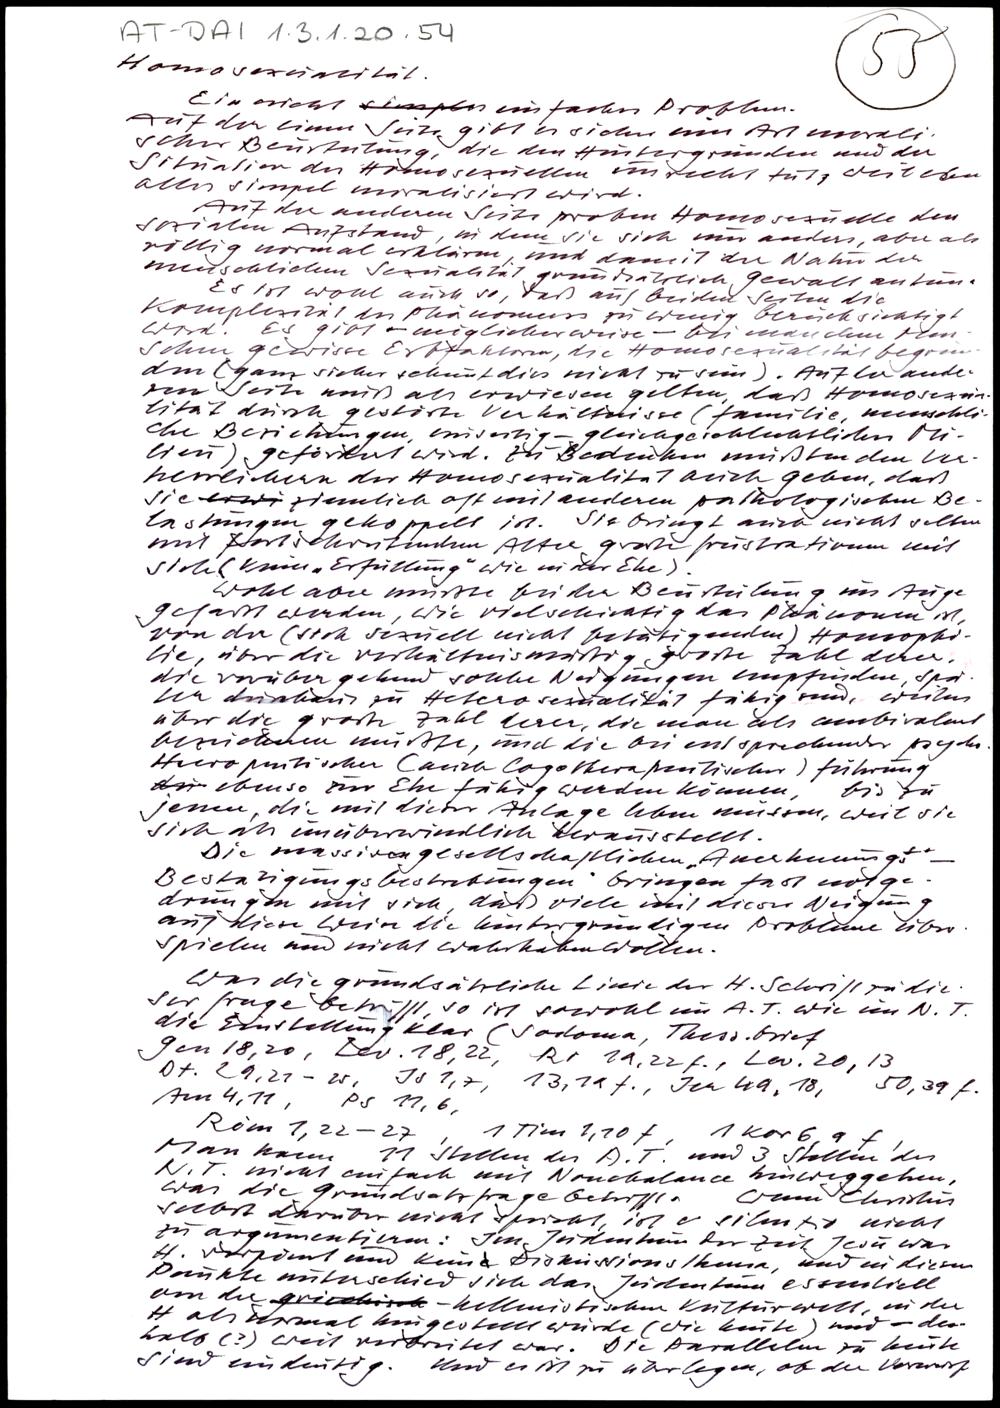 AT-DAI 1.3.1.20.54
55
Homosexualität.
Ein nicht simples einfaches Problem.
Auf der einen Seite gibt es sicher eine Art morali-
scher Beurteilung, die den Hintergründen und der
Situation des Homosexuellen unrecht tut, weil eben
alles simpel moralisiert wird.
Auf der anderen Seite proben Homosexuelle den
sozialen Aufstand, in dem sie sich nur anders, aber als
völlig normal erklären, und damit der Natur der
menschlichen Sexualität grundsätzlich Gewalt antun.
Es ist wohl auch so, daß auf beiden Seiten die
Komplexität des Phänomens zu wenig berücksichtigt
wird. Es gibt – möglicherweise – bei manchen Men-
schen gewisse Erbfaktoren, die Homosexualität begrün-
den (ganz sicher scheint dies nicht zu sein). Auf der ande-
ren Seite muß als erwiesen gelten, daß Homosexua-
lität durch gestörte Verhältnisse (Familie, menschli-
che Beziehungen, einseitig – gleichgeschlechtliches Mi-
lieu) gefördert wird. Zu Bedenken müßte den Ver-
herrlichern der Homosexualität auch geben, daß
sie ziemlich oft mit anderen pathologischen Be-
lastungen gekoppelt ist. Sie bringt auch nicht selten
mit fortschreitendem Alter große Frustrationen mit
sich (keine „Erfüllung" wie in der Ehe).
Wohl aber müßte bei der Beurteilung ins Auge
gefaßt werden, wie vielschichtig das Phänomen ist,
von der (sich sexuell nicht betätigenden) Homophi-
lie, über die verhältnismäßig große Zahl derer,
die vorübergehend solche Neigungen empfinden, spä-
ter durchaus zu Heterosexualität fähig sind, weiters
über die große Zahl derer, die man als ambivalent
bezeichnen müßte, und die bei entsprechender psycho-
therapeutischer (auch logotherapeutischer) Führung
ebenso zur Ehe fähig werden können, bis zu
jenen, die mit dieser Anlage leben müssen, weil sie
sich als unüberwindlich herausstellt.
Die massiven gesellschaftlichen „Anerkennungs"-
Bestätigungsbestrebungen" bringen fast notge-
drungen mit sich, daß viele mit dieser Neigung
auf diese Weise die hintergründigen Probleme über-
spielen und nicht wahrhaben wollen.
Was die grundsätzliche Linie der H. Schrift zu die-
ser Frage betrifft, so ist sowohl im A.T. wie im N.T.
die Einstellung klar (Sodoma, Thess. brief
Gen 18,20, Lev. 18,22, Ri 19,22 f., Lev. 20,13
Dt. 29,21-25, Is 1,7, 13,19 f., Jer 49,18, 50,39 f.
Am 4,11, Ps 11,6,
Röm 1,22-27, 1 Tim 1,10 f, 1 Kor 6,9 f,
Man kann 11 Stellen des A.T. und 3 Stellen des
N.T. nicht einfach mit Nonchalance hinweggehen,
was die Grundsatzfrage betrifft. Wenn Christus
selbst darüber nicht spricht, ist e silentio nicht
zu argumentieren: Im Judentum der Zeit Jesu war
H. verpönt und kein Diskussionsthema, und in diesem
Punkte unterschied sich das Judentum essentiell
von der griechisch-hellenistischen Kulturwelt, in der
H als normal hingestellt wurde (wie heute) und – des-
halb (?) weit verbreitet war. Die Parallelen zu heute
sind eindeutig. Und es ist zu überlegen, ob der Vorwurf